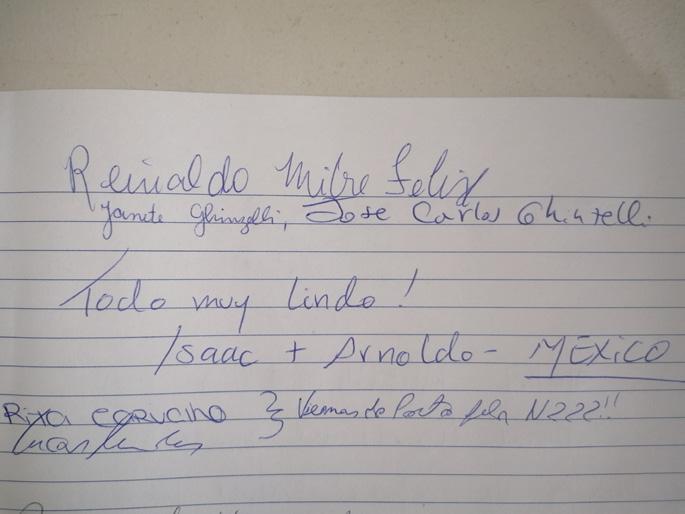 Reinaldo Mitre Felix
Janete Ghinzelli, Jose Carlos Ghinzelli.
Todo muy lindo!
Isaac + Arnoldo - MEXICO
Rita carvalho } Viemos do Porto pela N222!!
Lucas